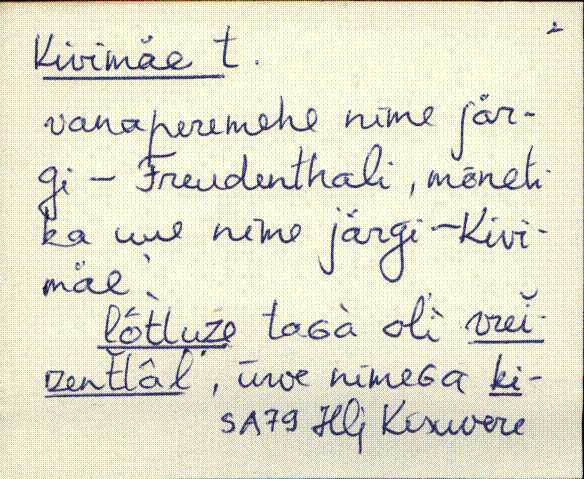 Kivimäe t.
vanaperemehe nime jär-
gi – Freudenthali, mõneti
ka uue nime järgi – Kivi-
mäe.
lòtluze taGà oli vrei-
zentlâl', ūwe nimeGa ki-
SA79 Hlj Kesuvere